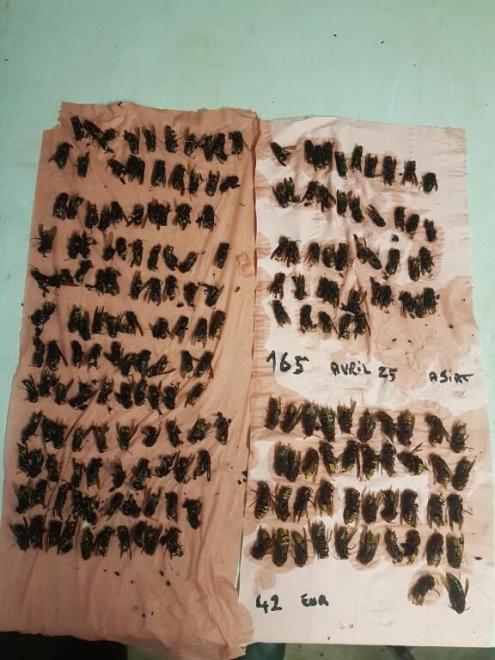 165 AVRIL 25 ASIAT
42 EUR